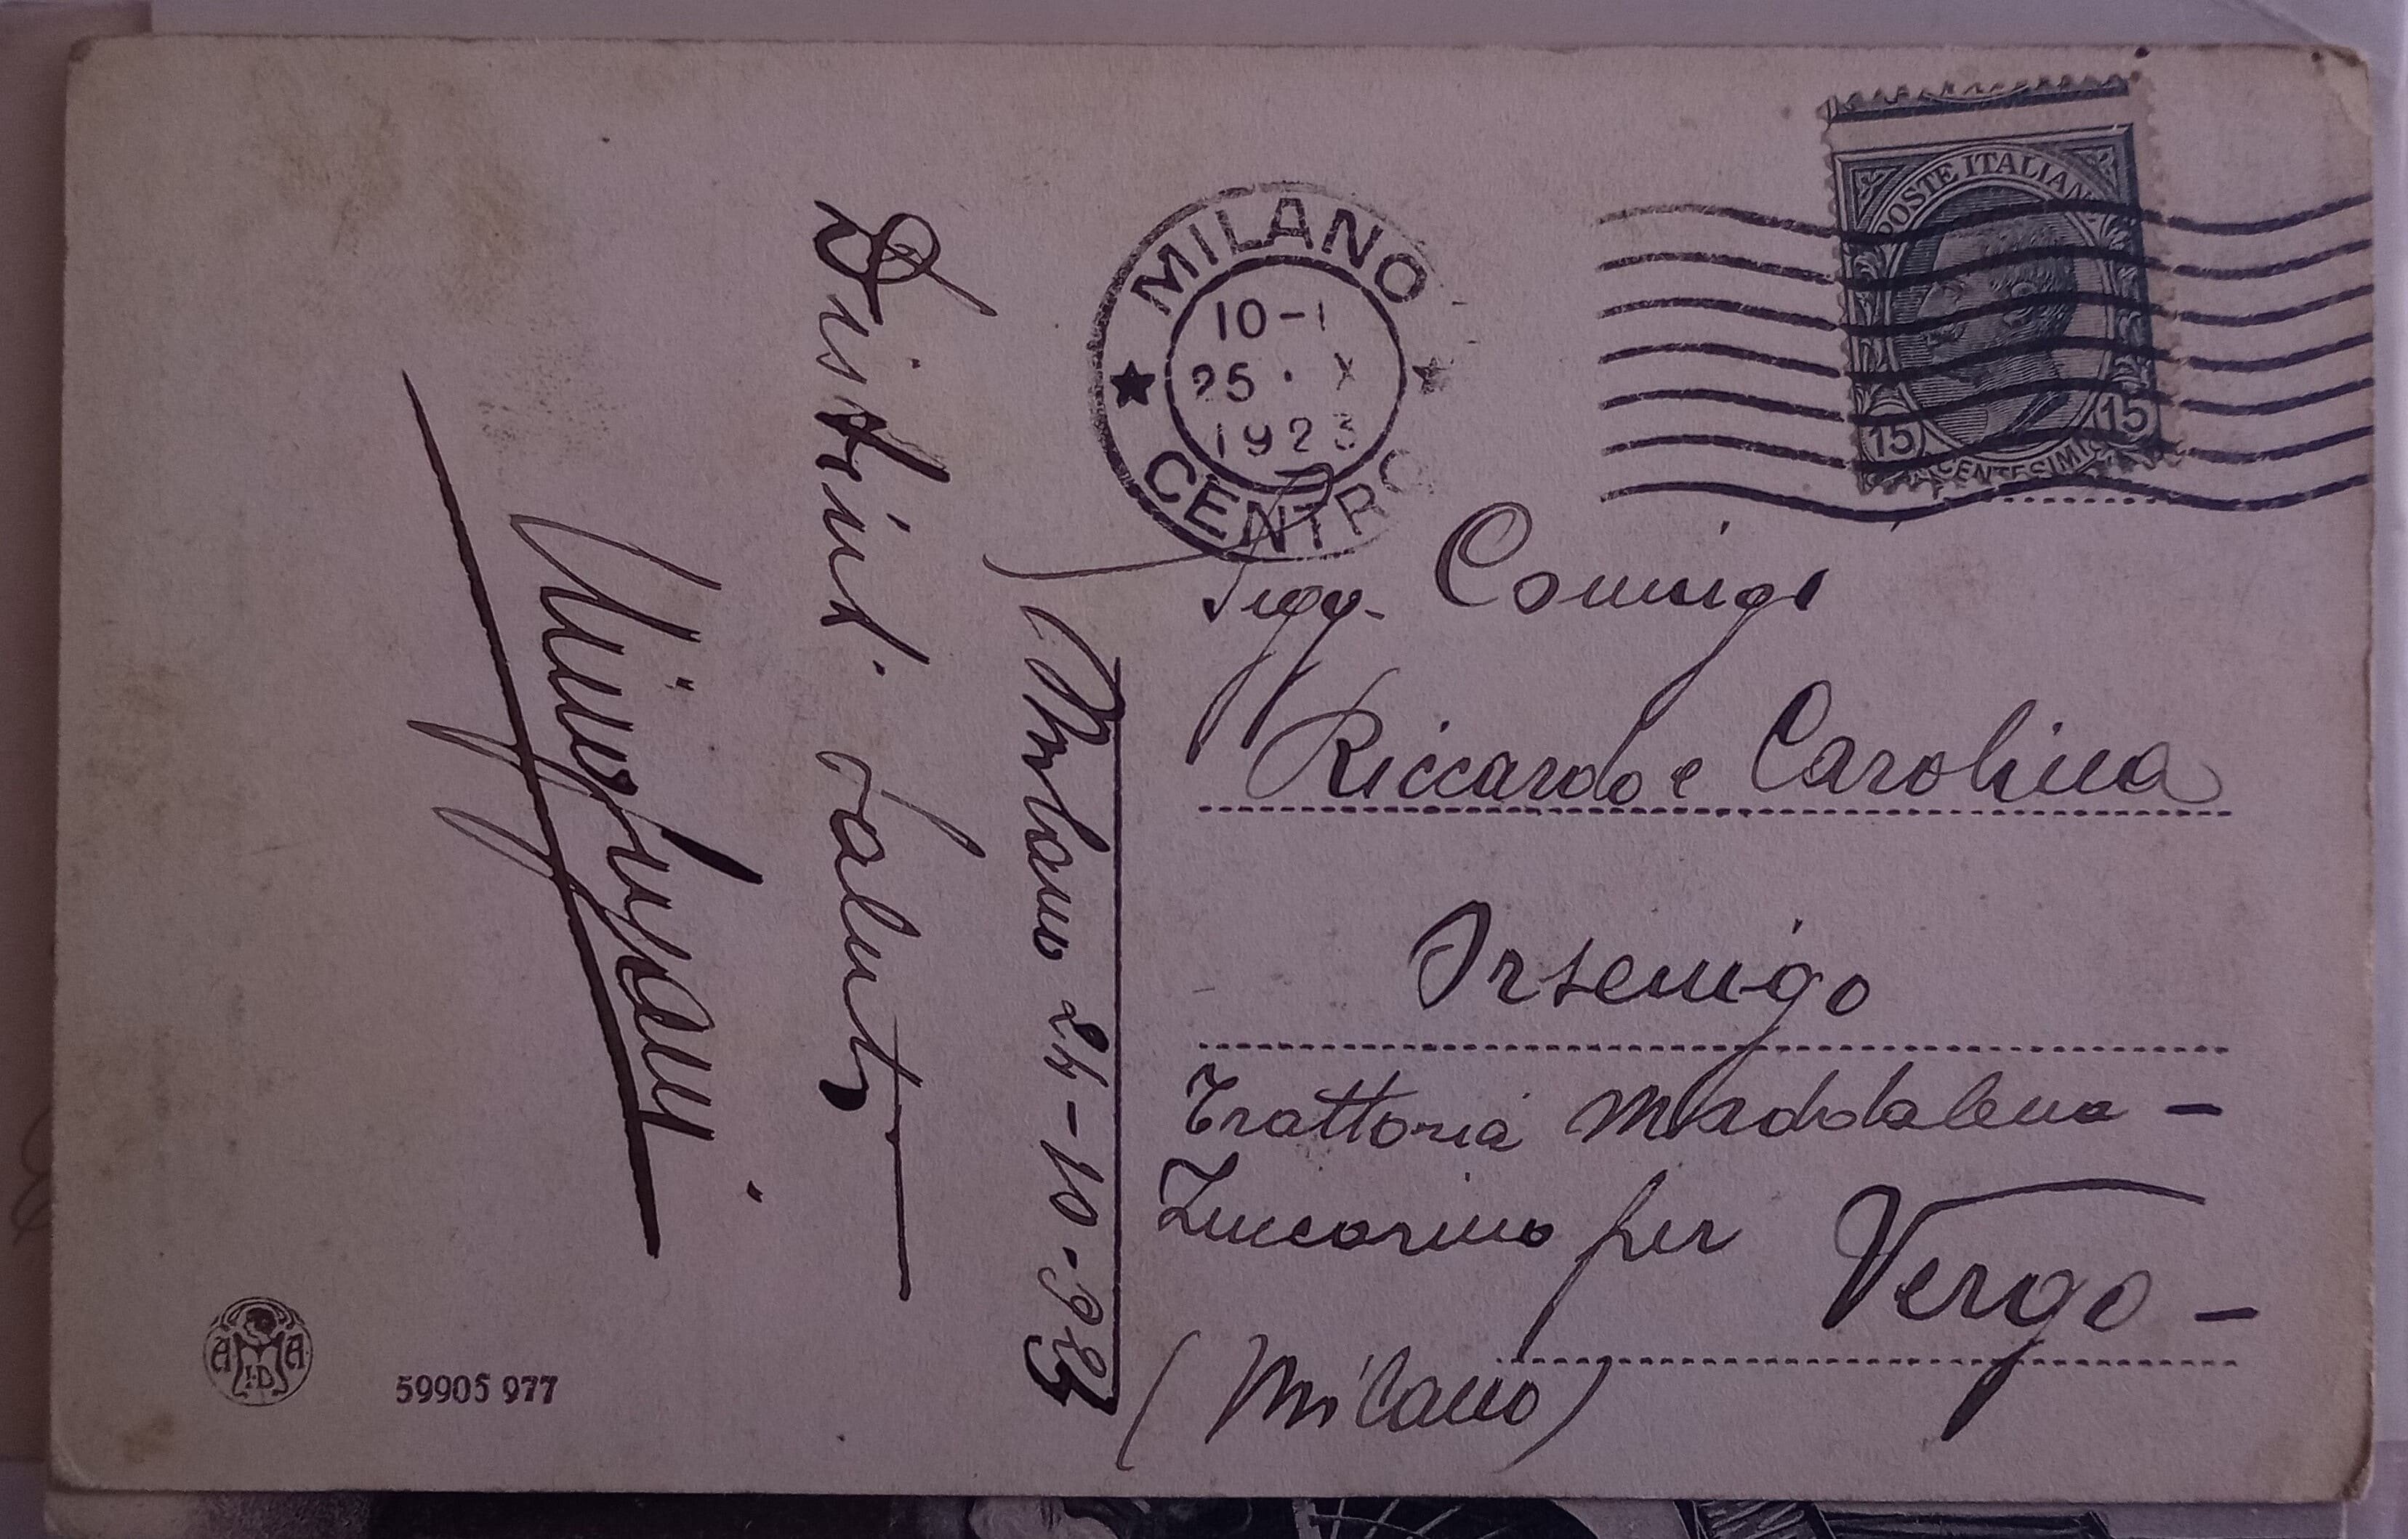 Milano 24-10-923
Distinti saluti
MILANO
10-1
25 · X
1923
CENTRO
POSTE ITALIANE
15 15
CENTESIMI
Sigg. Coniugi
Riccardo e Carolina
Orsenigo
Trattoria Maddalena -
Zuccorino per Vergo -
(Milano)
A M A
I.D
59905 977